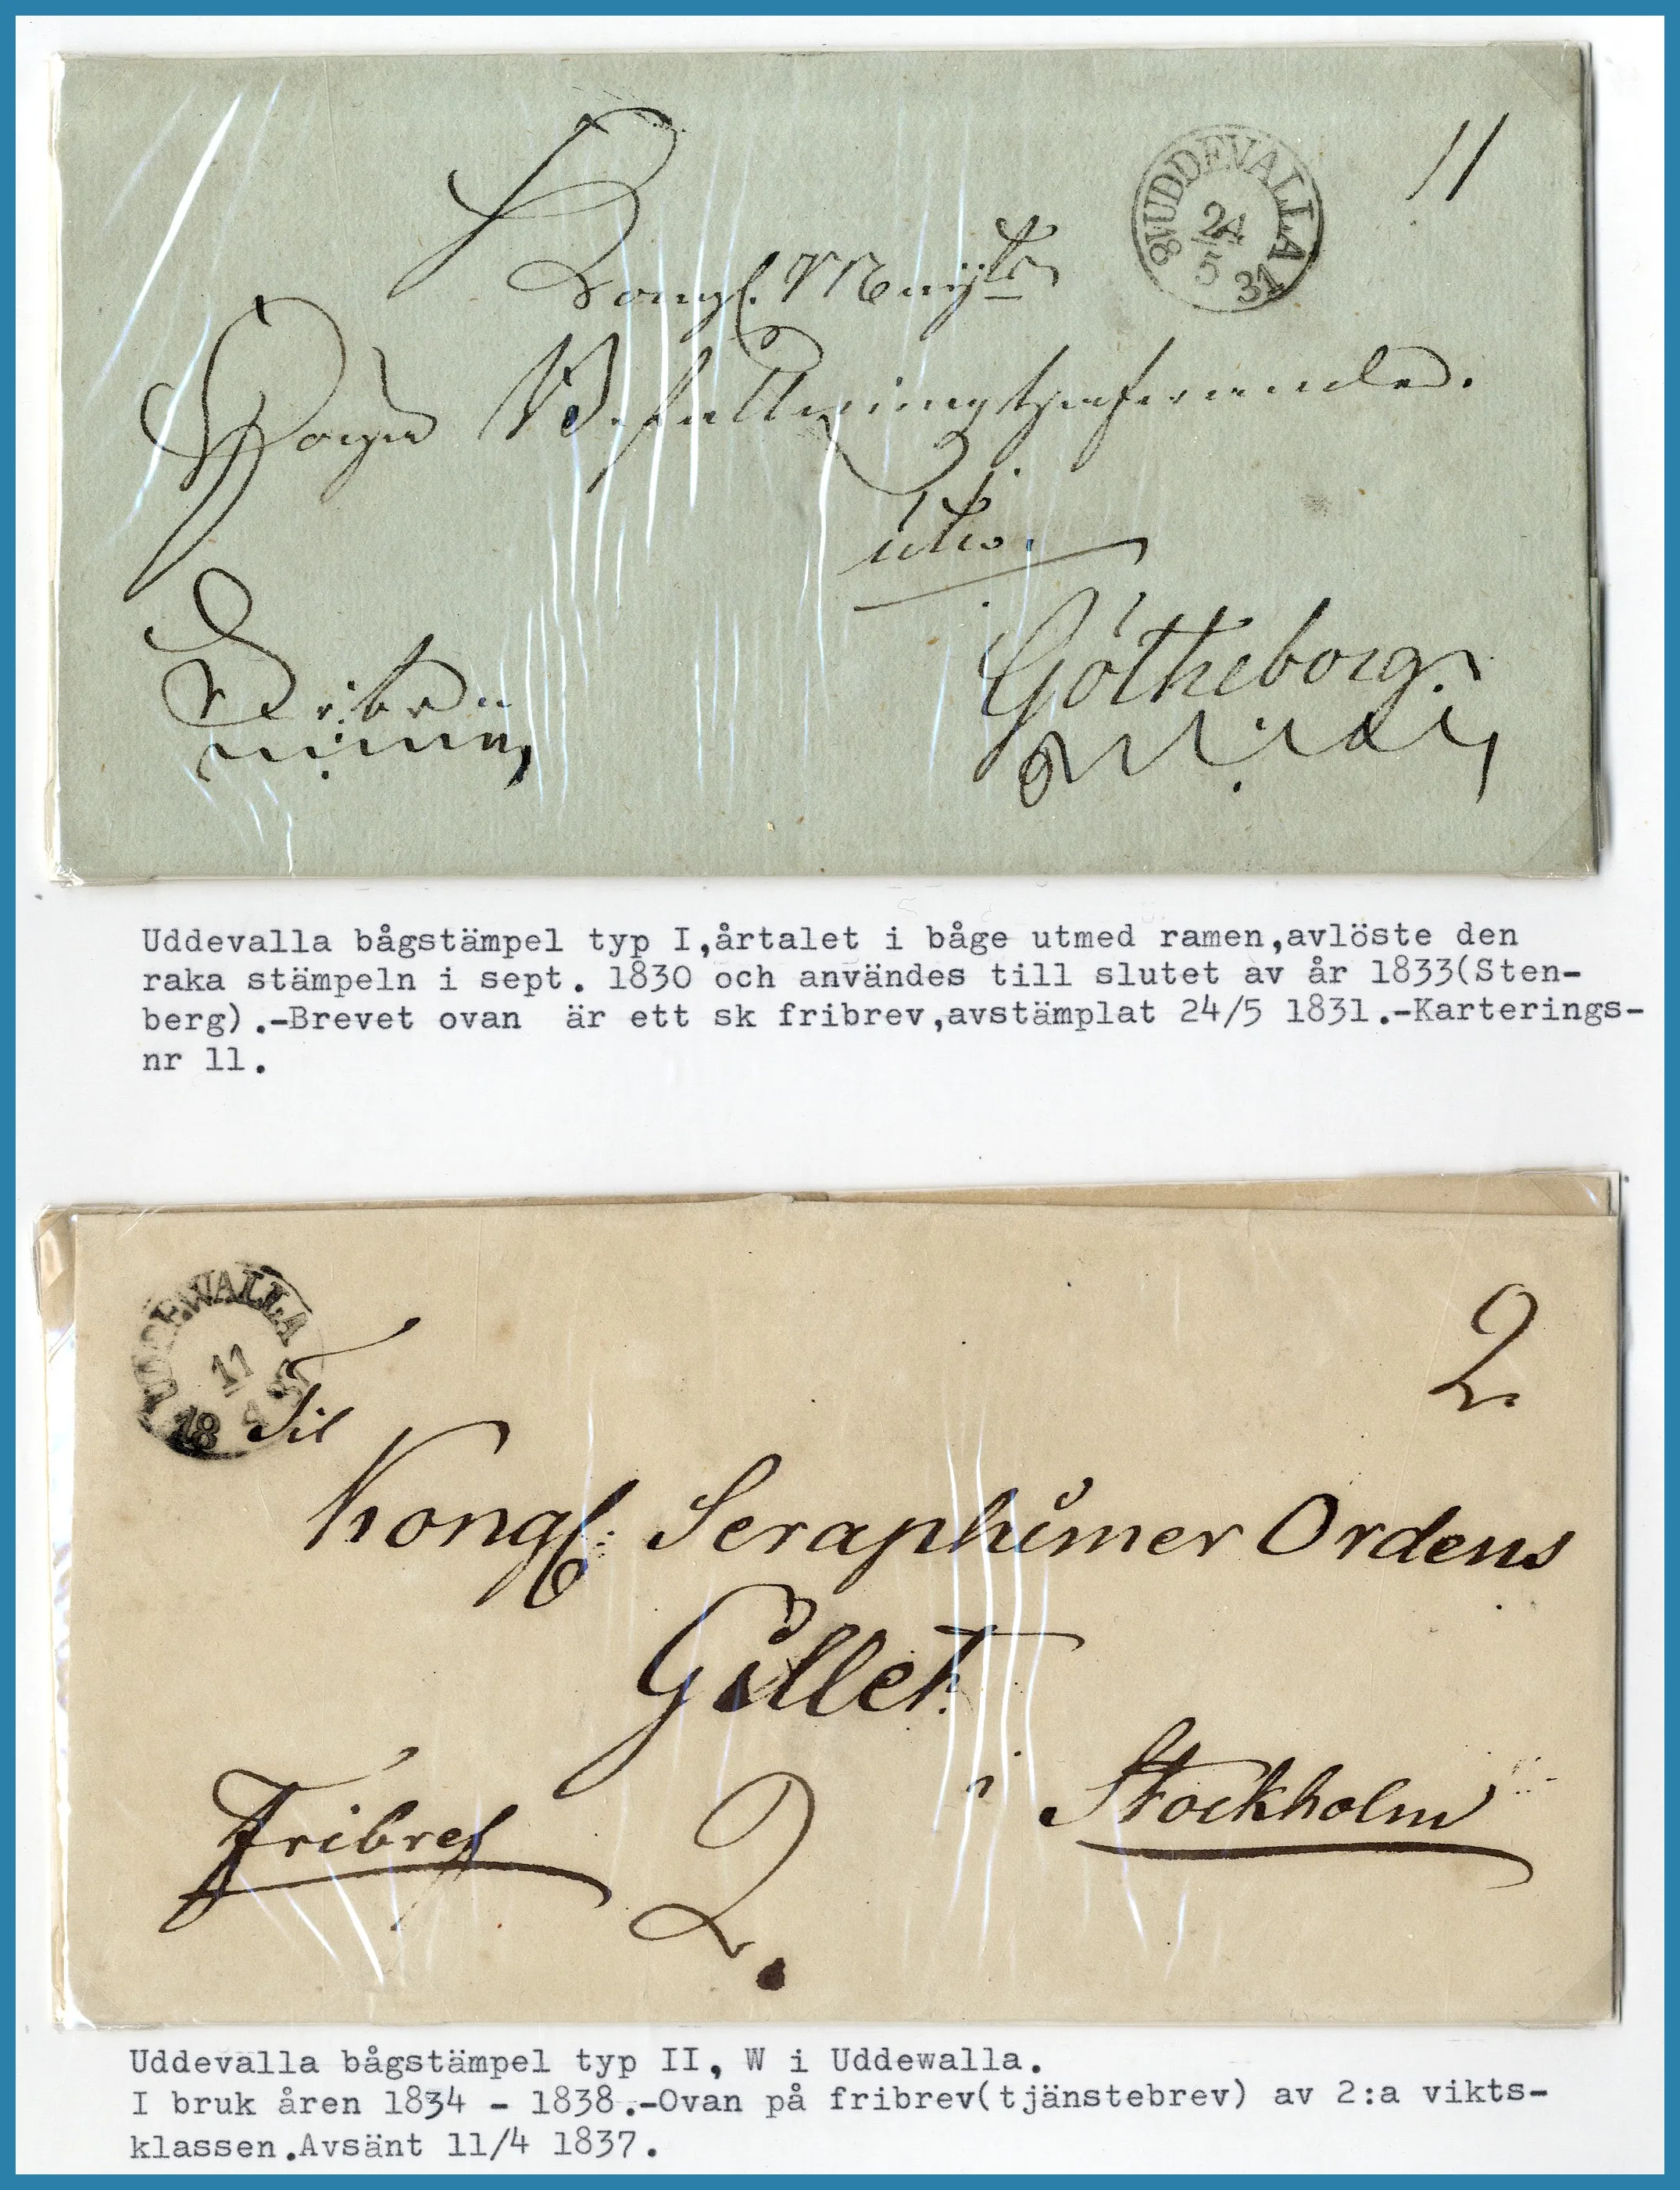 11
UDDEVALLA
24
5
18 31
Kongl. Maij:ts
Höga Befallningshafwande.
uti
Götheborg.
Fribref
Uddevalla bågstämpel typ I,årtalet i båge utmed ramen,avlöste den
raka stämpeln i sept. 1830 och användes till slutet av år 1833(Sten-
berg).-Brevet ovan är ett sk fribrev,avstämplat 24/5 1831.-Karterings-
nr 11.
UDDEWALLA
11
4
18 37
2
Til
Kongl: Seraphimer Ordens
Gillet.
i Stockholm
Fribref
2.
Uddevalla bågstämpel typ II, W i Uddewalla.
I bruk åren 1834 - 1838.-Ovan på fribrev(tjänstebrev) av 2:a vikts-
klassen.Avsänt 11/4 1837.